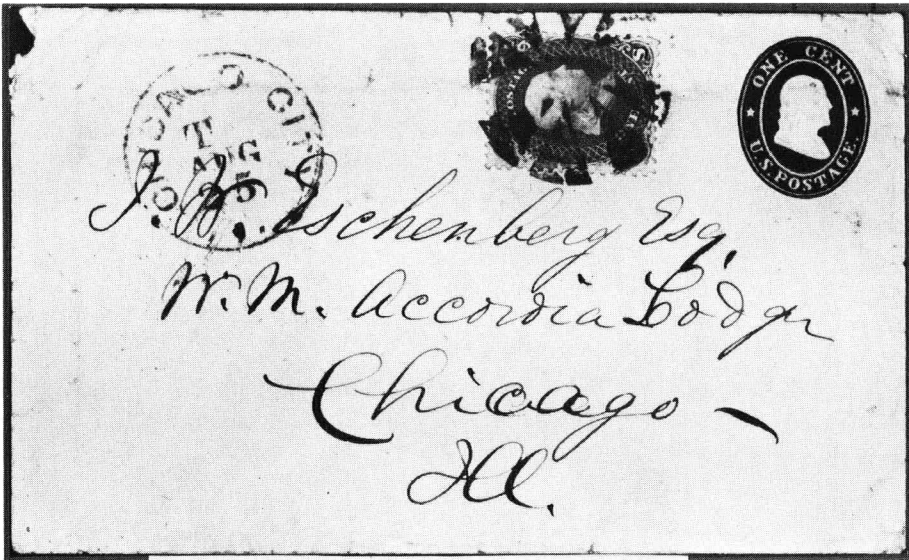 CHICAGO CITY
T
AUG
5
ONE CENT
U.S. POSTAGE.
J. W. Eschenberg Esq,
W. M. Accordia Lodge
Chicago -
Ill.